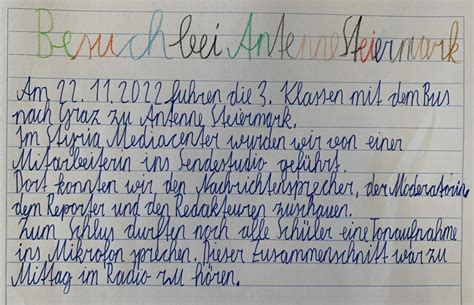 Besuch bei Antenne Steiermark
Am 22.11.2022 fuhren die 3. Klassen mit dem Bus
nach Graz zu Antenne Steiermark.
Im Styria Mediacenter wurden wir von einer
Mitarbeiterin ins Sendestudio geführt.
Dort konnten wir den Nachrichtensprecher, der Moderatorin,
dem Reporter und den Redakteuren zuschauen.
Zum Schlus durften noch alle Schüler eine Tonaufnahme
ins Mikrofon sprechen. Dieser Zusammenschnitt war zu
Mittag im Radio zu hören.